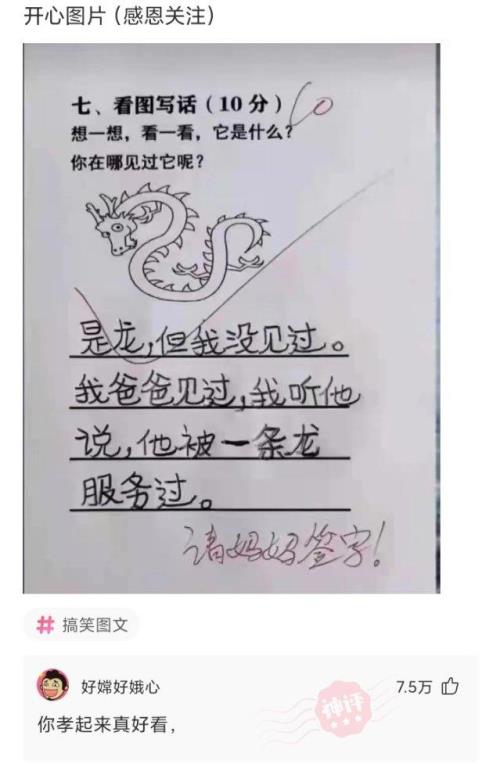 开心图片（感恩关注）
七、看图写话（10分）
想一想，看一看，它是什么？
你在哪见过它呢？
是龙，但我没见过。
我爸爸见过，我听他
说，他被一条龙
服务过。
请妈妈签字！
# 搞笑图文
好嫦好娥心
7.5万
神评
你孝起来真好看，